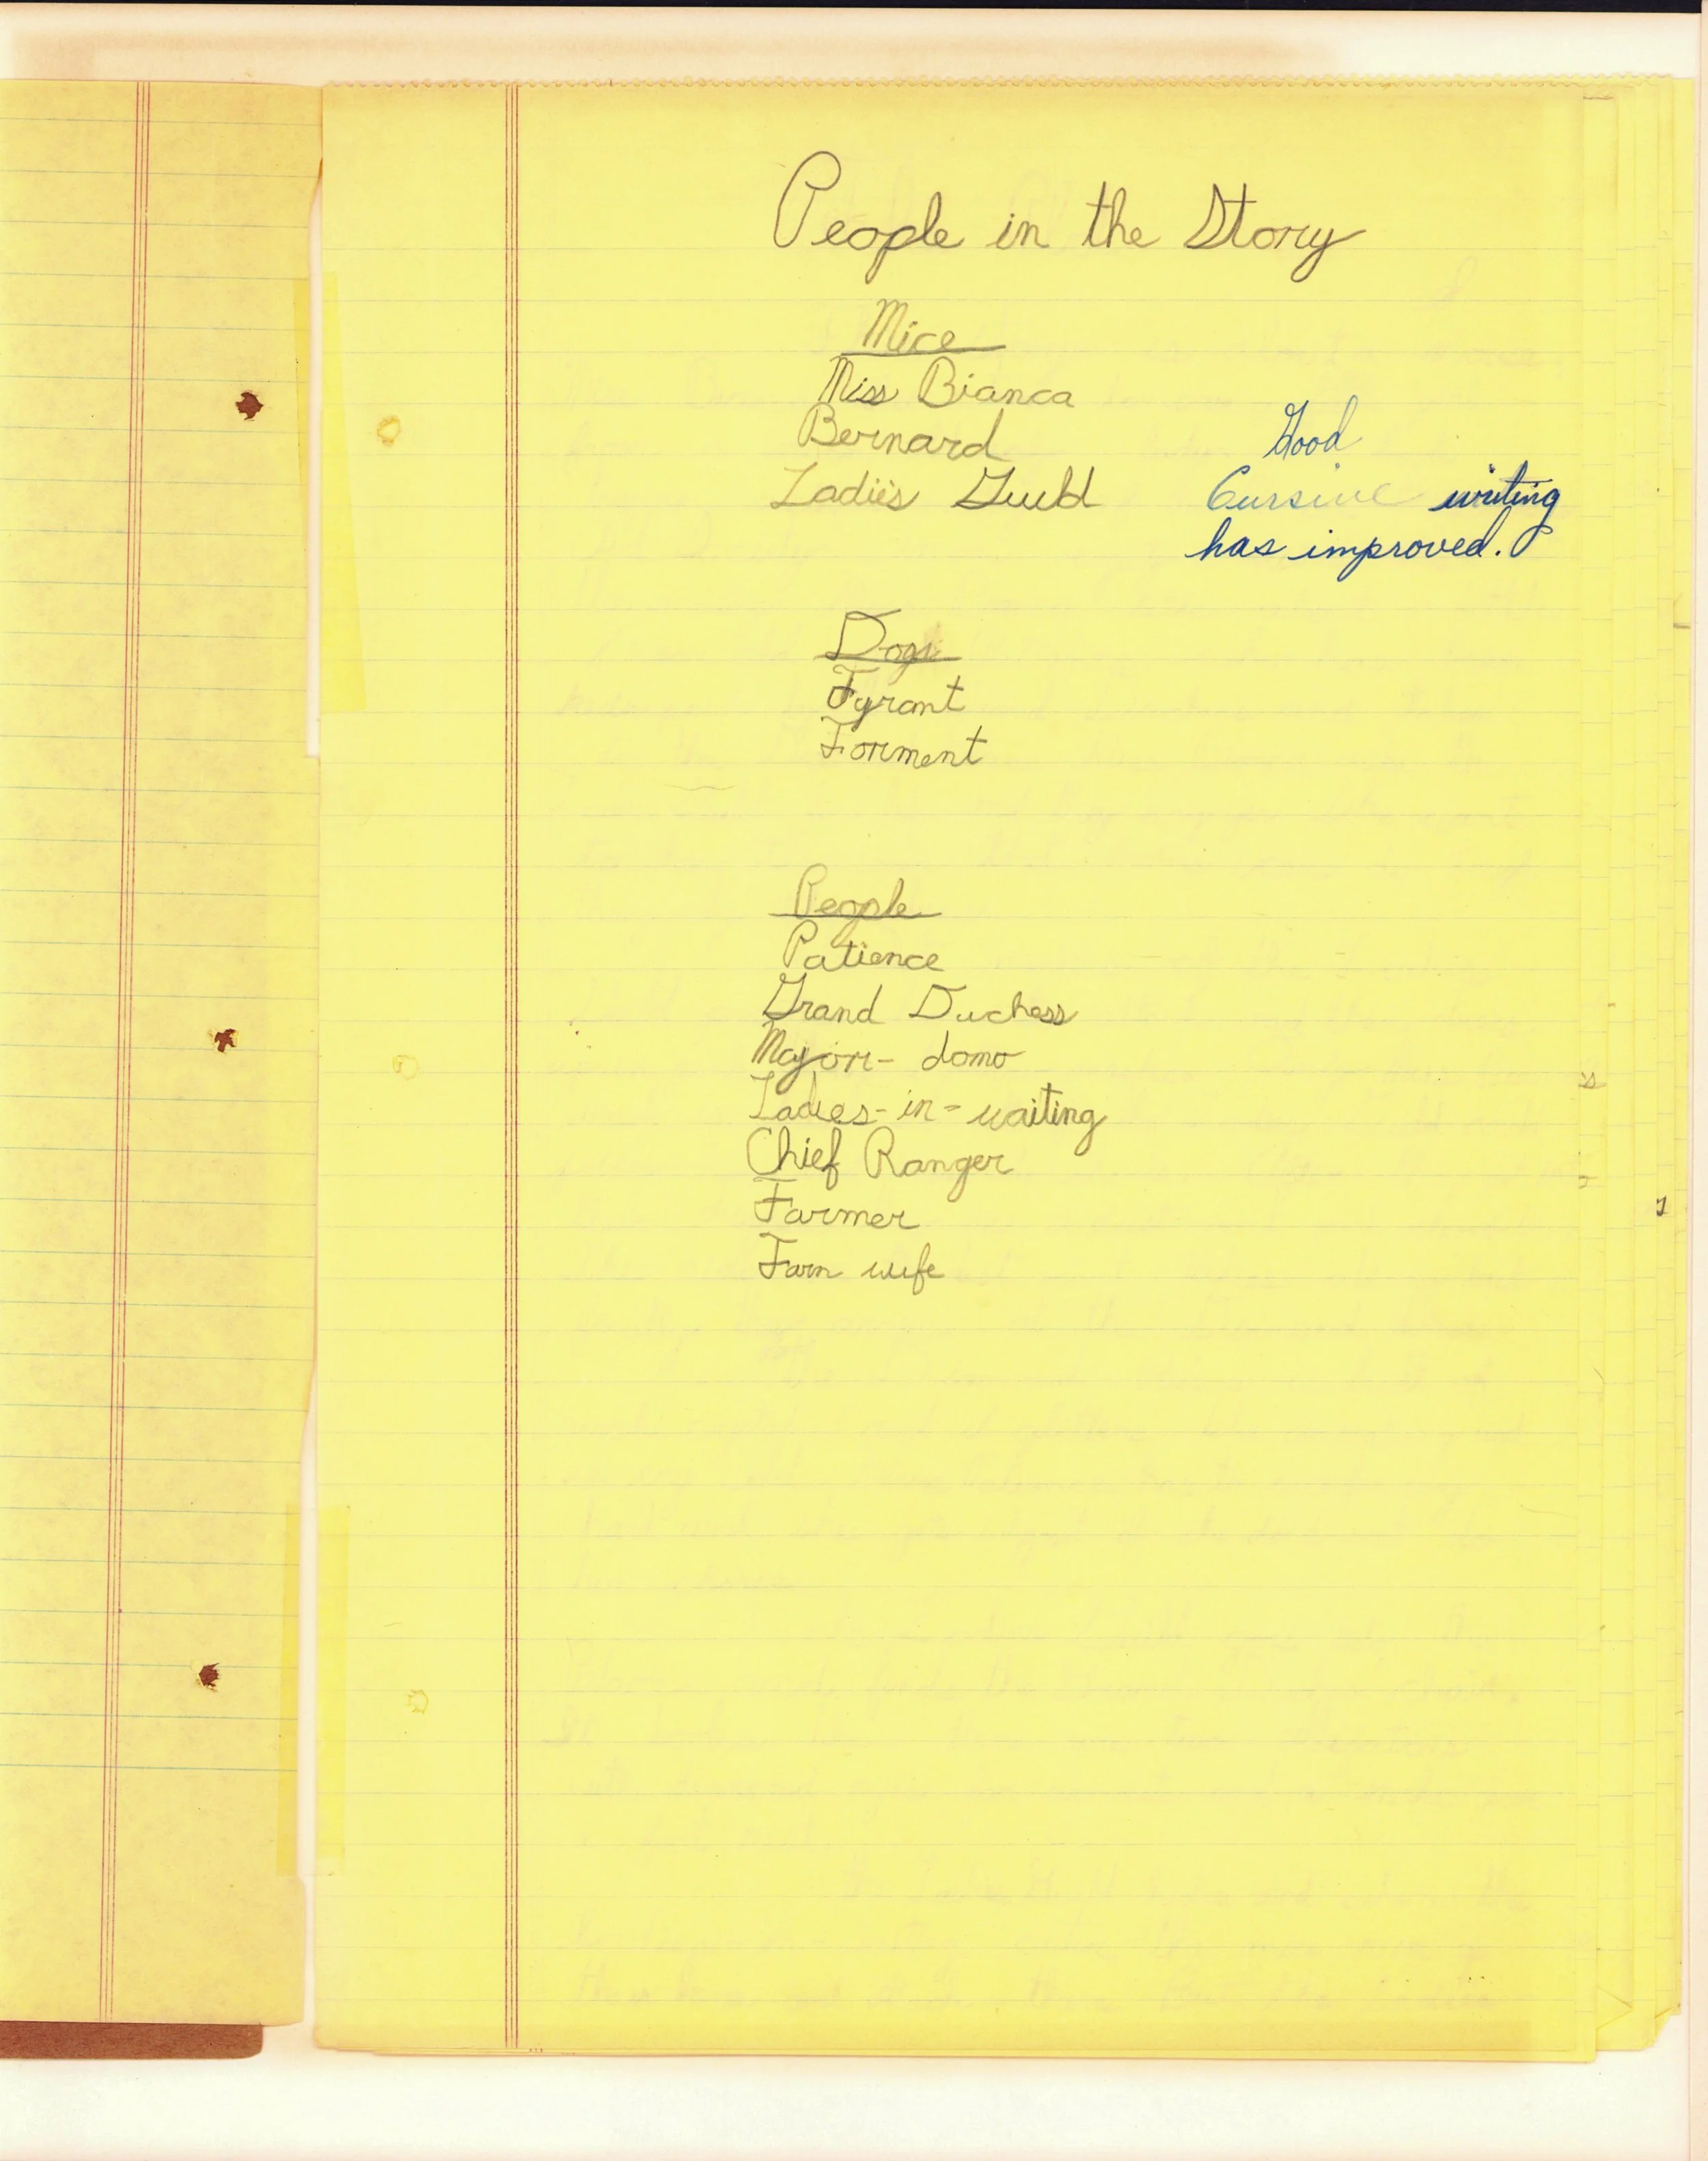 People in the Story
Mice
Miss Bianca
Bernard
Ladies Guild
Good
Cursive writing
has improved.
Dogs
Tyrant
Torment
People
Patience
Grand Duchess
Major-domo
Ladies-in-waiting
Chief Ranger
Farmer
Farm wife